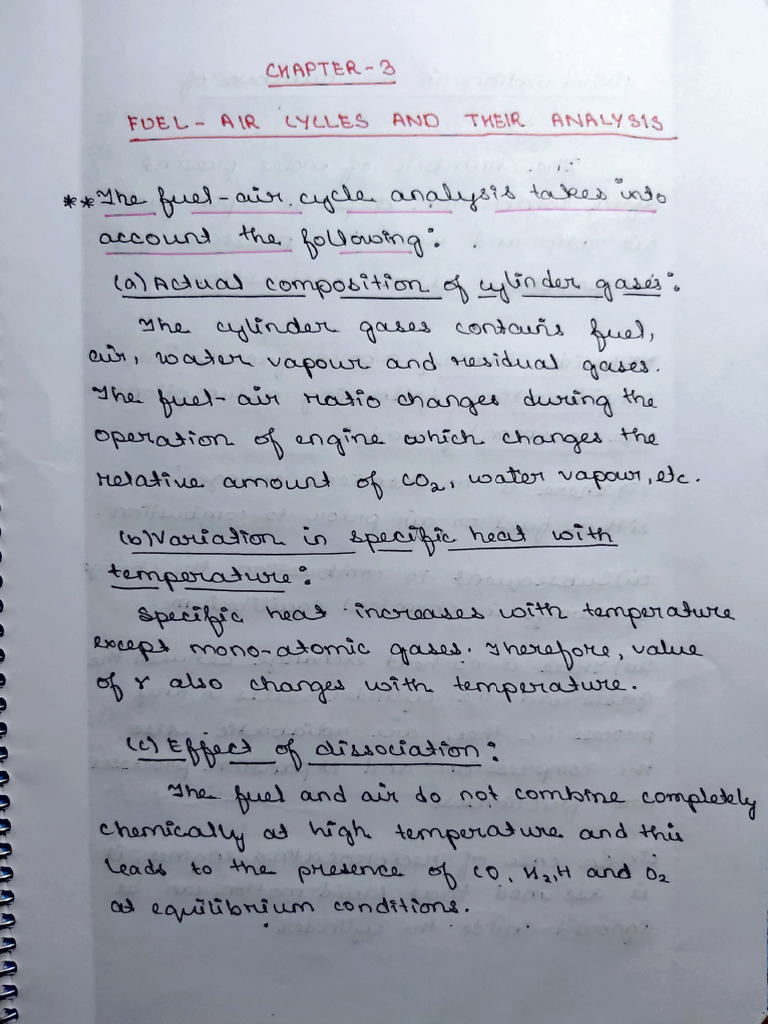 CHAPTER-3
FUEL-AIR CYCLES AND THEIR ANALYSIS
**The fuel-air cycle analysis takes into
account the following:
(a) Actual composition of cylinder gases:
The cylinder gases contains fuel,
air, water vapour and residual gases.
The fuel-air ratio changes during the
operation of engine which changes the
relative amount of CO₂, water vapour, etc.
(b) Variation in specific heat with
temperature:
Specific heat increases with temperature
except mono-atomic gases. Therefore, value
of r also changes with temperature.
(c) Effect of dissociation:
The fuel and air do not combine completely
chemically at high temperature and this
leads to the presence of CO, H₂, H and O₂
at equilibrium conditions.